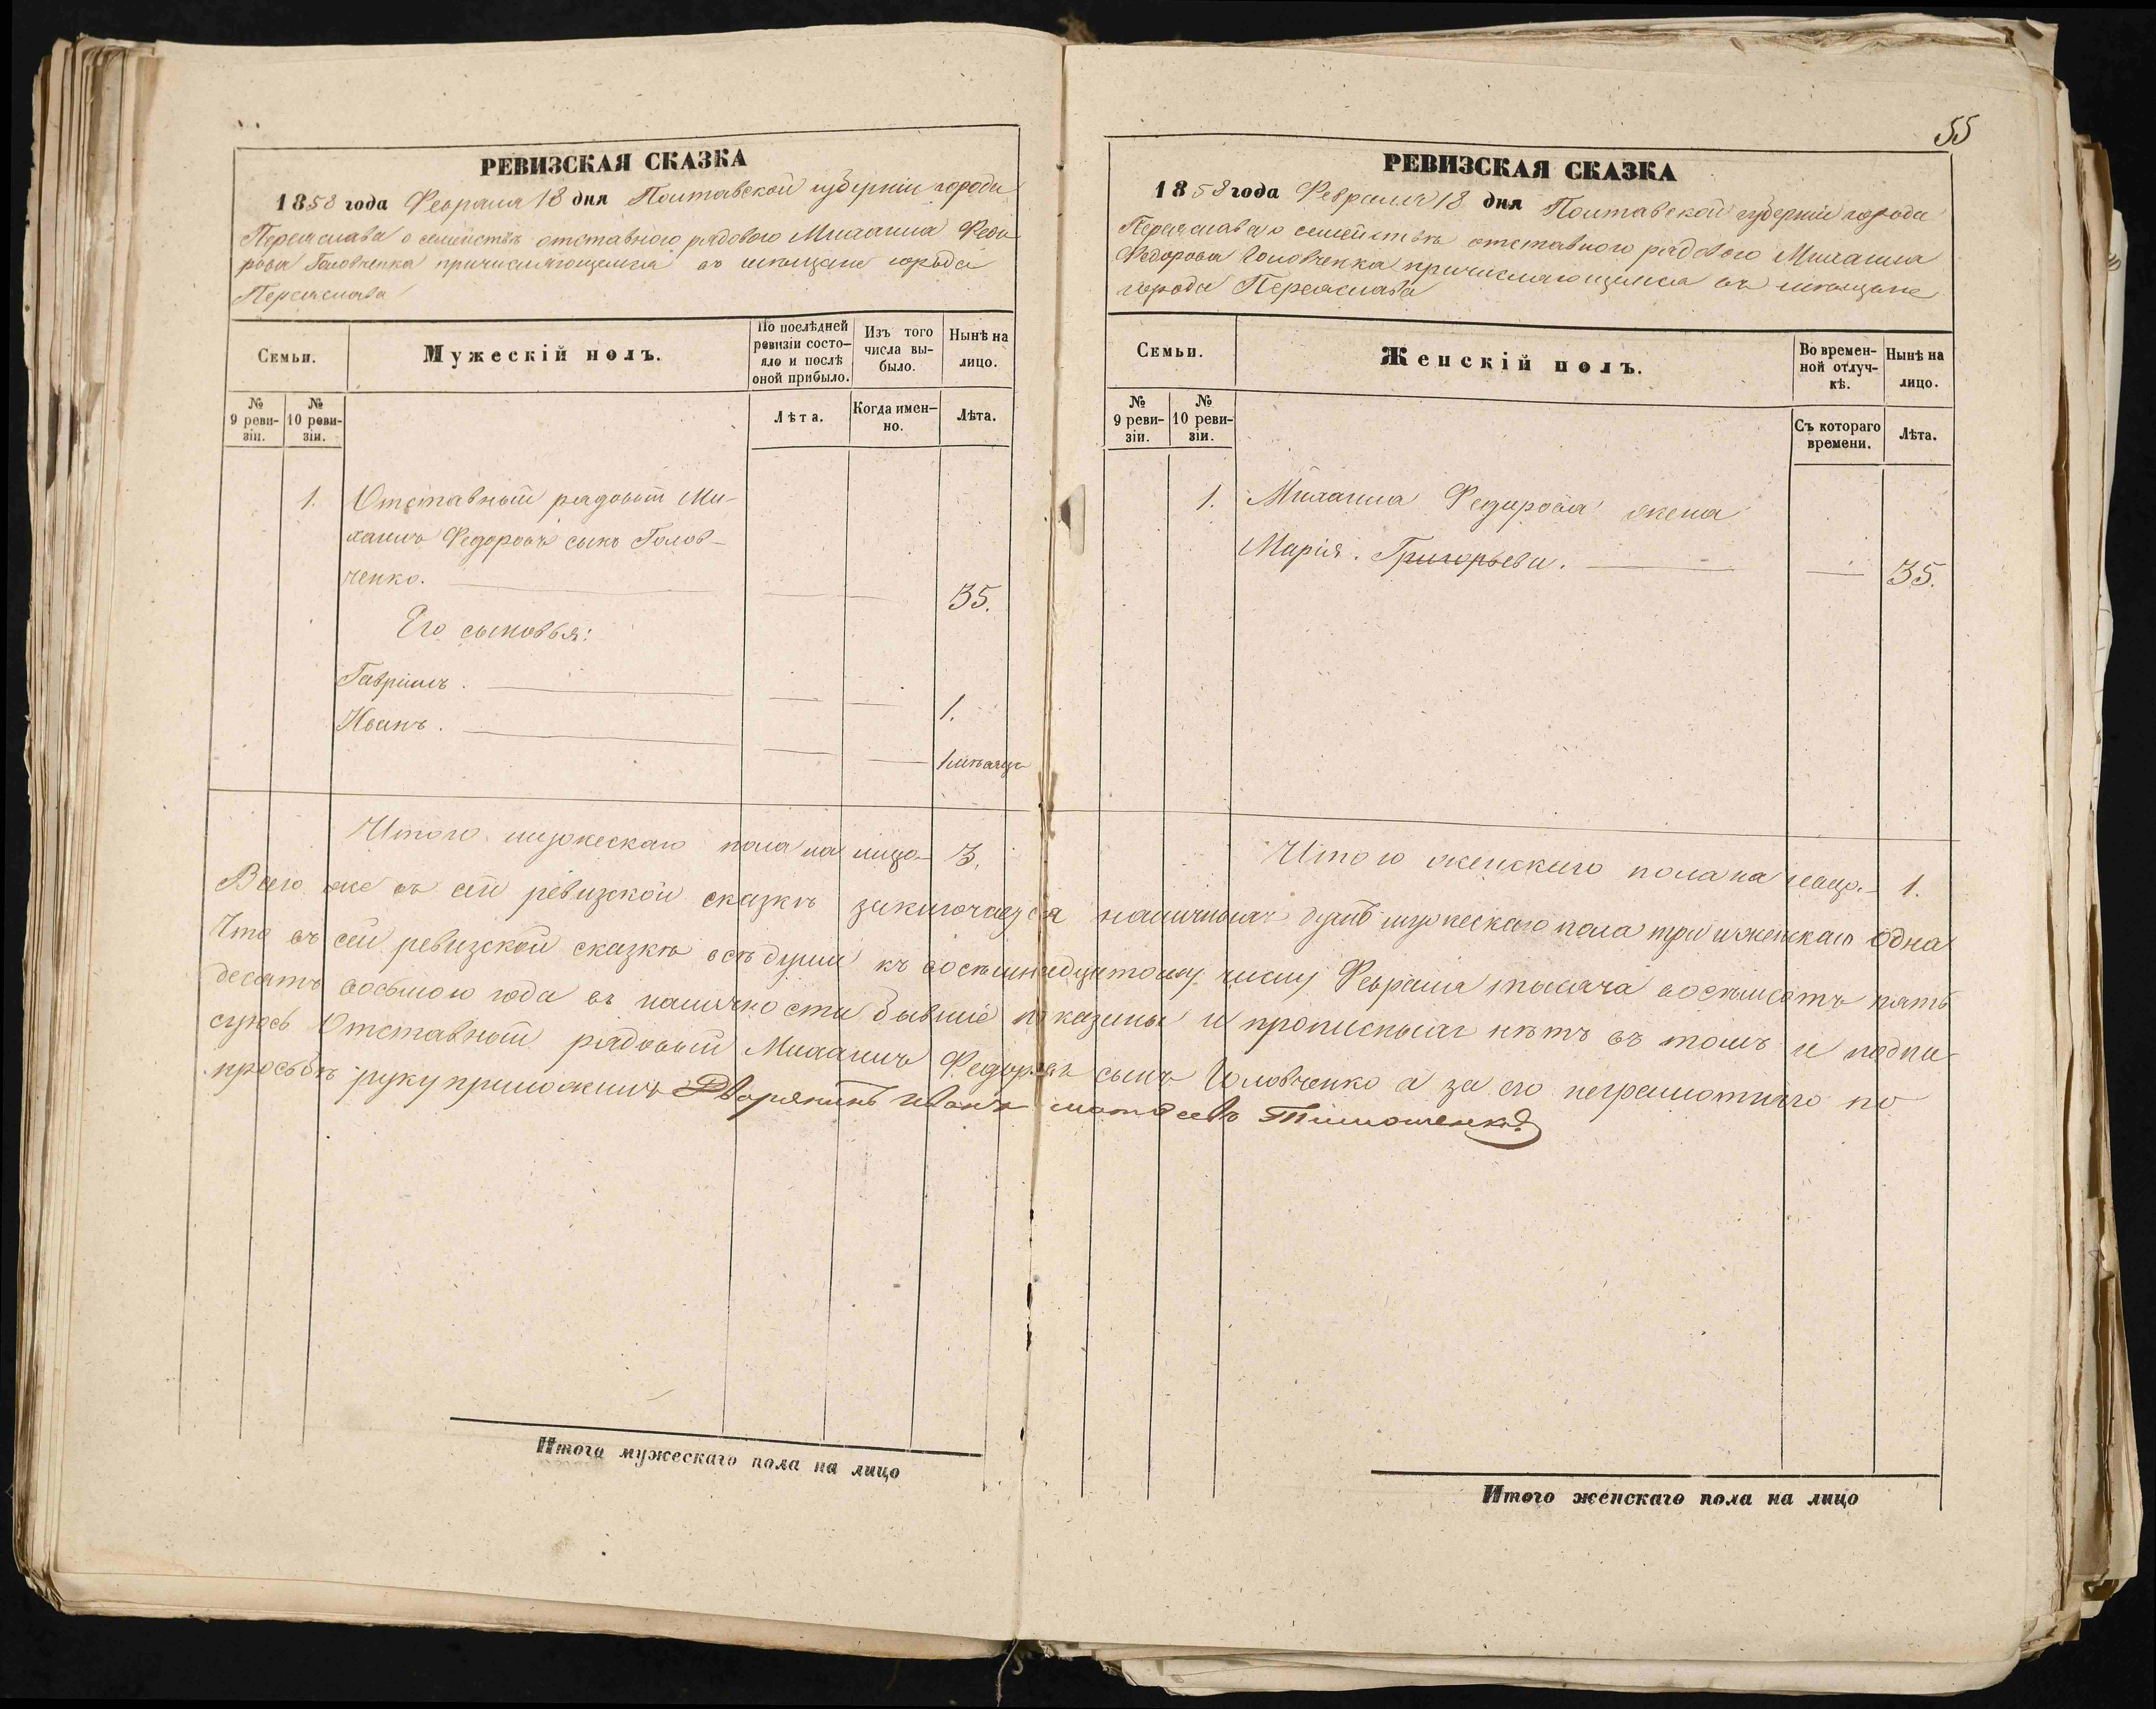 РЕВИЗСКАЯ СКАЗКА
1858 года Февраля 18 дня Полтавской губерніи города
Переяслава о семействѣ отставного рядового Михаила Федо-
рова Головченка причисляющемся въ мѣщане города
Переяслава
Семьи.
Мужескій полъ.
По послѣдней ревизіи состо-
яло и послѣ оной прибыло.
Изъ того числа вы-
было.
Нынѣ на лицо.
№ 9 реви-
зіи.
№ 10 реви-
зіи.
Лѣта.
Когда имен-
но.
Лѣта.
1. Отставный рядовый Ми-
хаилъ Федоровъ сынъ Голов-
ченко. 35.
Его сыновья:
Гавріилъ. 1.
Иванъ. 1 мѣсяцъ
Итого мужескаго пола на лицо 3.
55
РЕВИЗСКАЯ СКАЗКА
1858 года Февраля 18 дня Полтавской губерніи города
Переяслава о семействѣ отставного рядового Михаила
Федорова Головченка причисляющемся въ мѣщане
города Переяслава
Семьи.
Женскій полъ.
Во времен-
ной отлуч-
кѣ.
Нынѣ на лицо.
№ 9 реви-
зіи.
№ 10 реви-
зіи.
Съ котораго времени.
Лѣта.
1. Михаила Федорова жена
Марія Григорьева. 35.
Итого женскаго пола на лицо 1.
Всего же въ сей ревизкой сказкѣ заключается наличныхъ душъ мужескаго пола три и женскаго одна
Что въ сей ревизской сказкѣ всѣ души къ восемнадцатому числу Февраля тысяча восемьсотъ пять
десятъ восьмого года въ наличности бывшіе показаны и прописныхъ нѣтъ въ томъ и подпи
суюсь Отставный рядовый Михаилъ Федоровъ сынъ Головченко а за его неграмотнаго по
просьбѣ руку приложилъ Дворянинъ Иванъ Матвѣевъ Тимошенко
Итого мужескаго пола на лицо
Итого женскаго пола на лицо